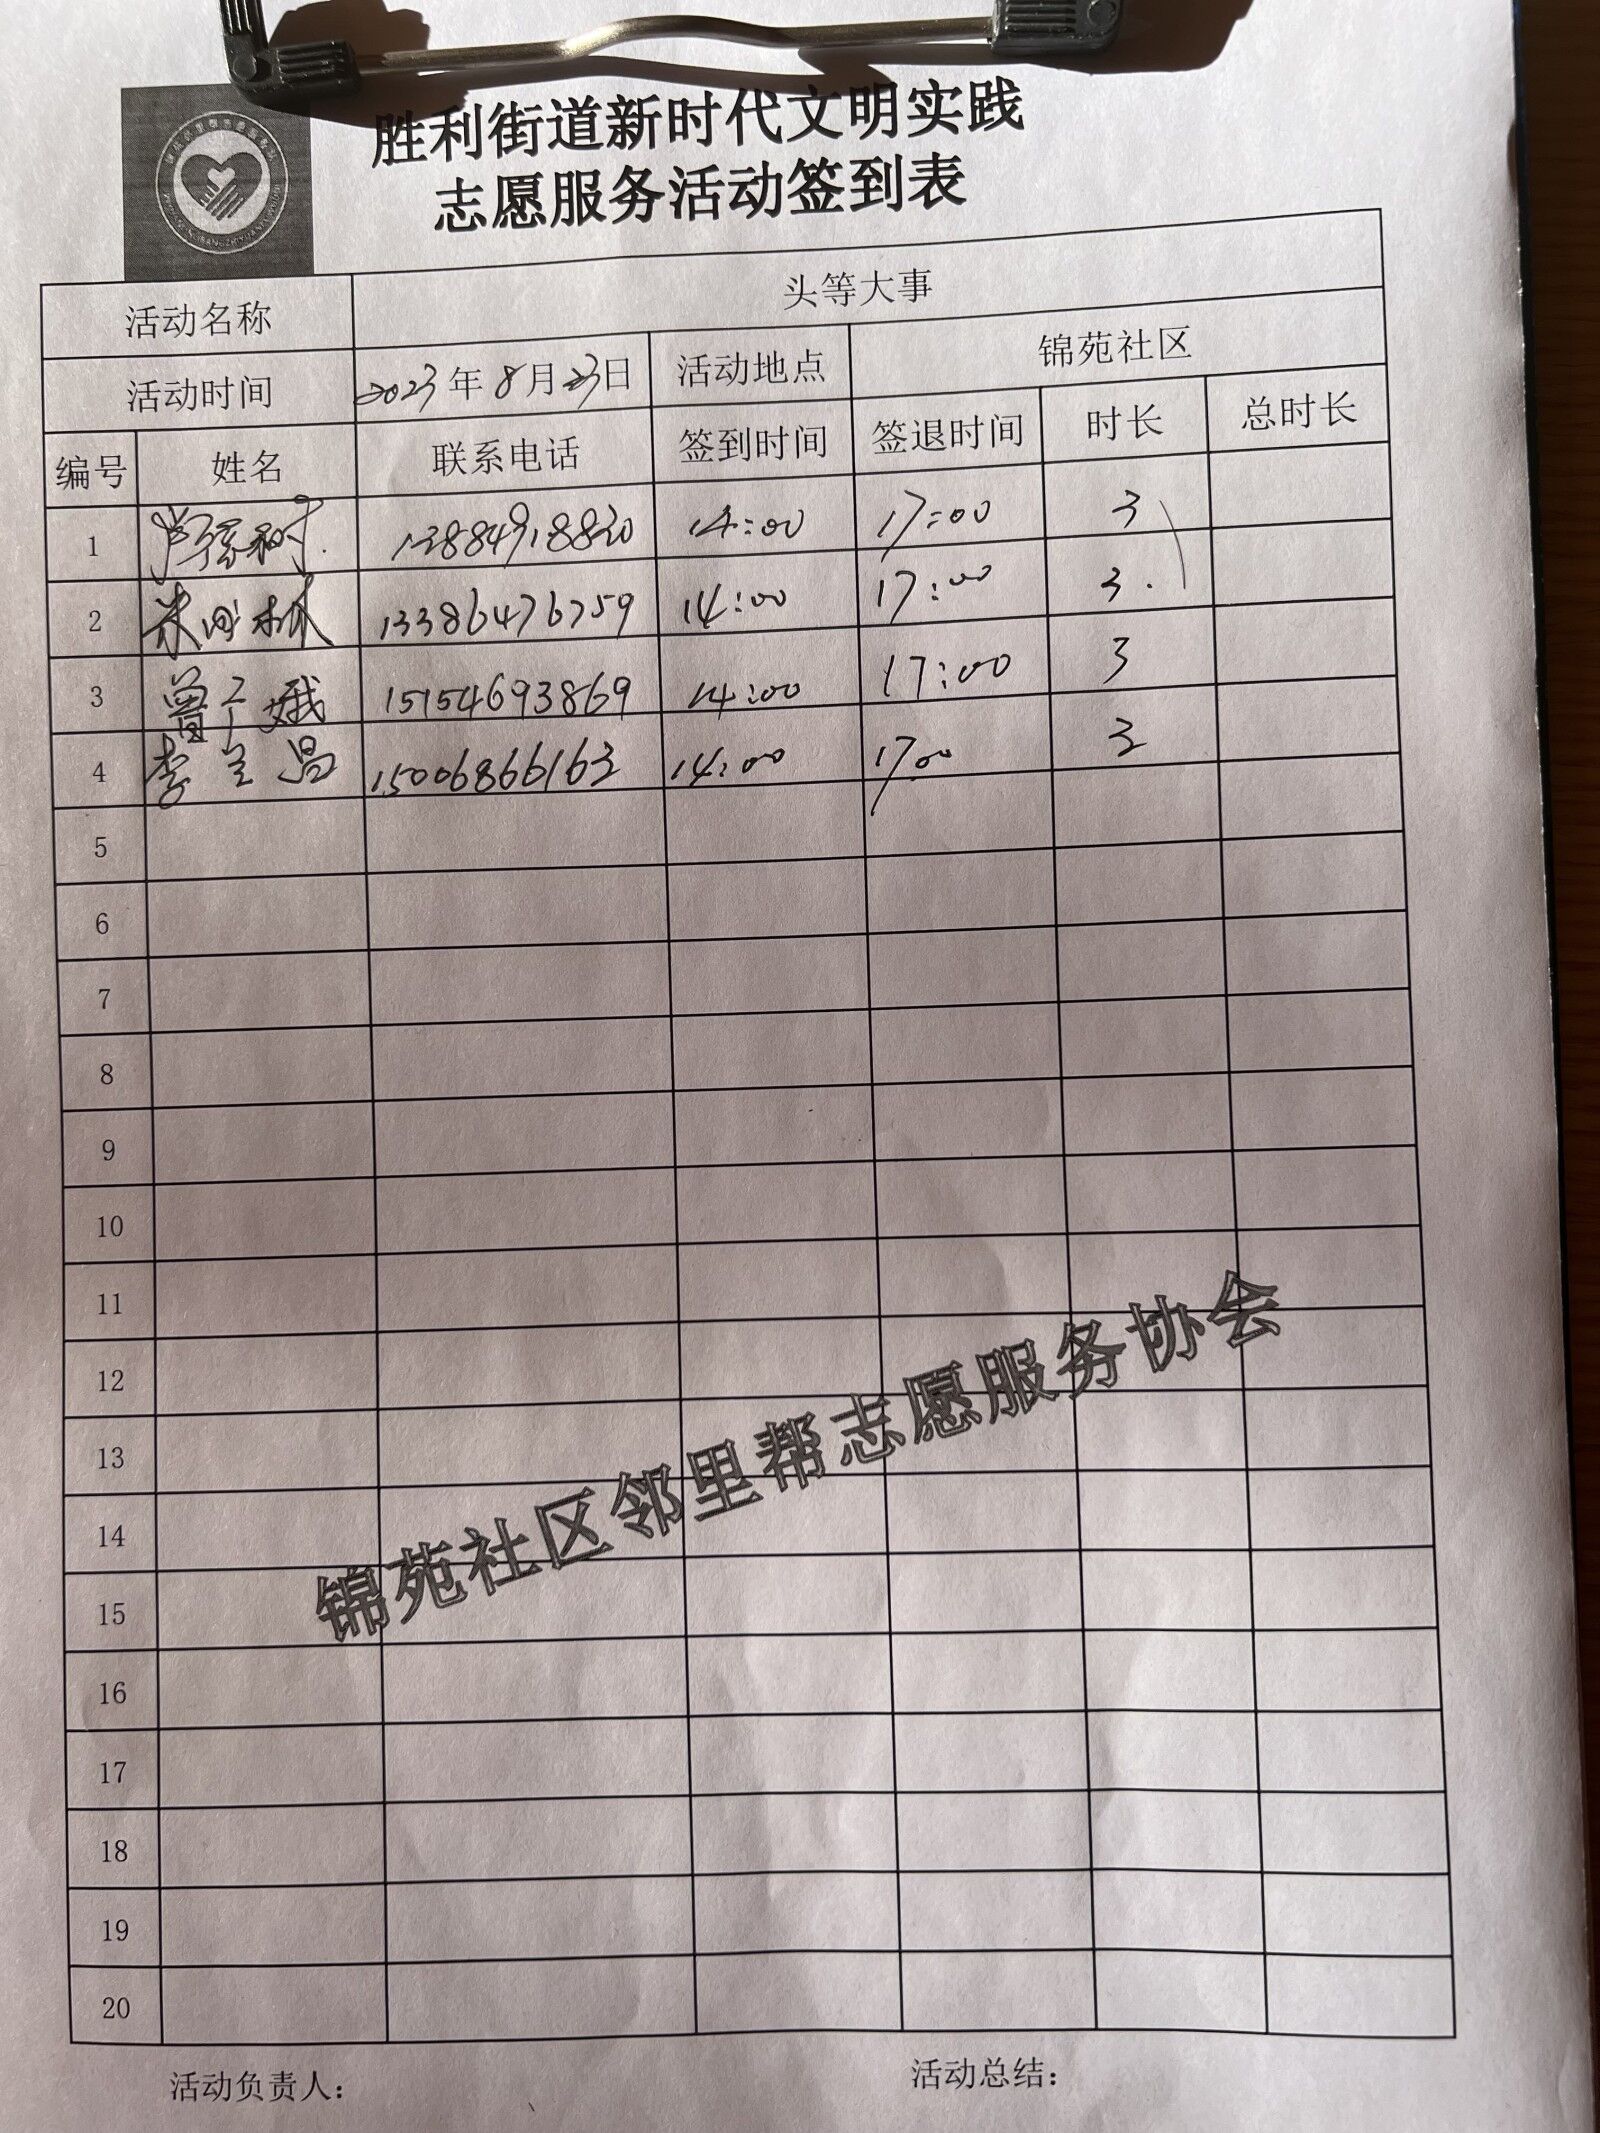 胜利街道新时代文明实践
志愿服务活动签到表
活动名称 头等大事
活动时间 2023年8月23日 活动地点 锦苑社区
编号 姓名 联系电话 签到时间 签退时间 时长 总时长
1 13884918820 14:00 17:00 3
2 13386476759 14:00 17:00 3.
3 曾子娥 15154693869 14:00 17:00 3
4 李兰昌 15006866163 14:00 17:00 3
5
6
7
8
9
10
11
12
13
14
15
16
17
18
19
20
锦苑社区邻里帮志愿服务协会
活动负责人: 活动总结: